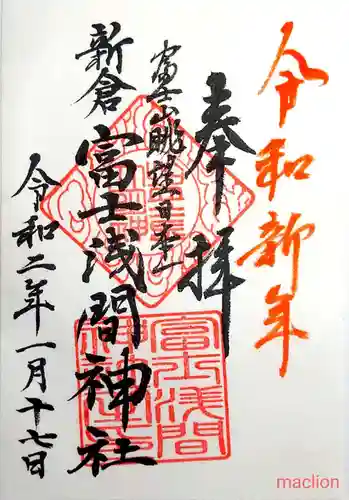 令和新年
奉拝
富士山眺望日本一
新倉富士浅間神社
令和二年一月十七日
富士浅間
神社之印
maclion